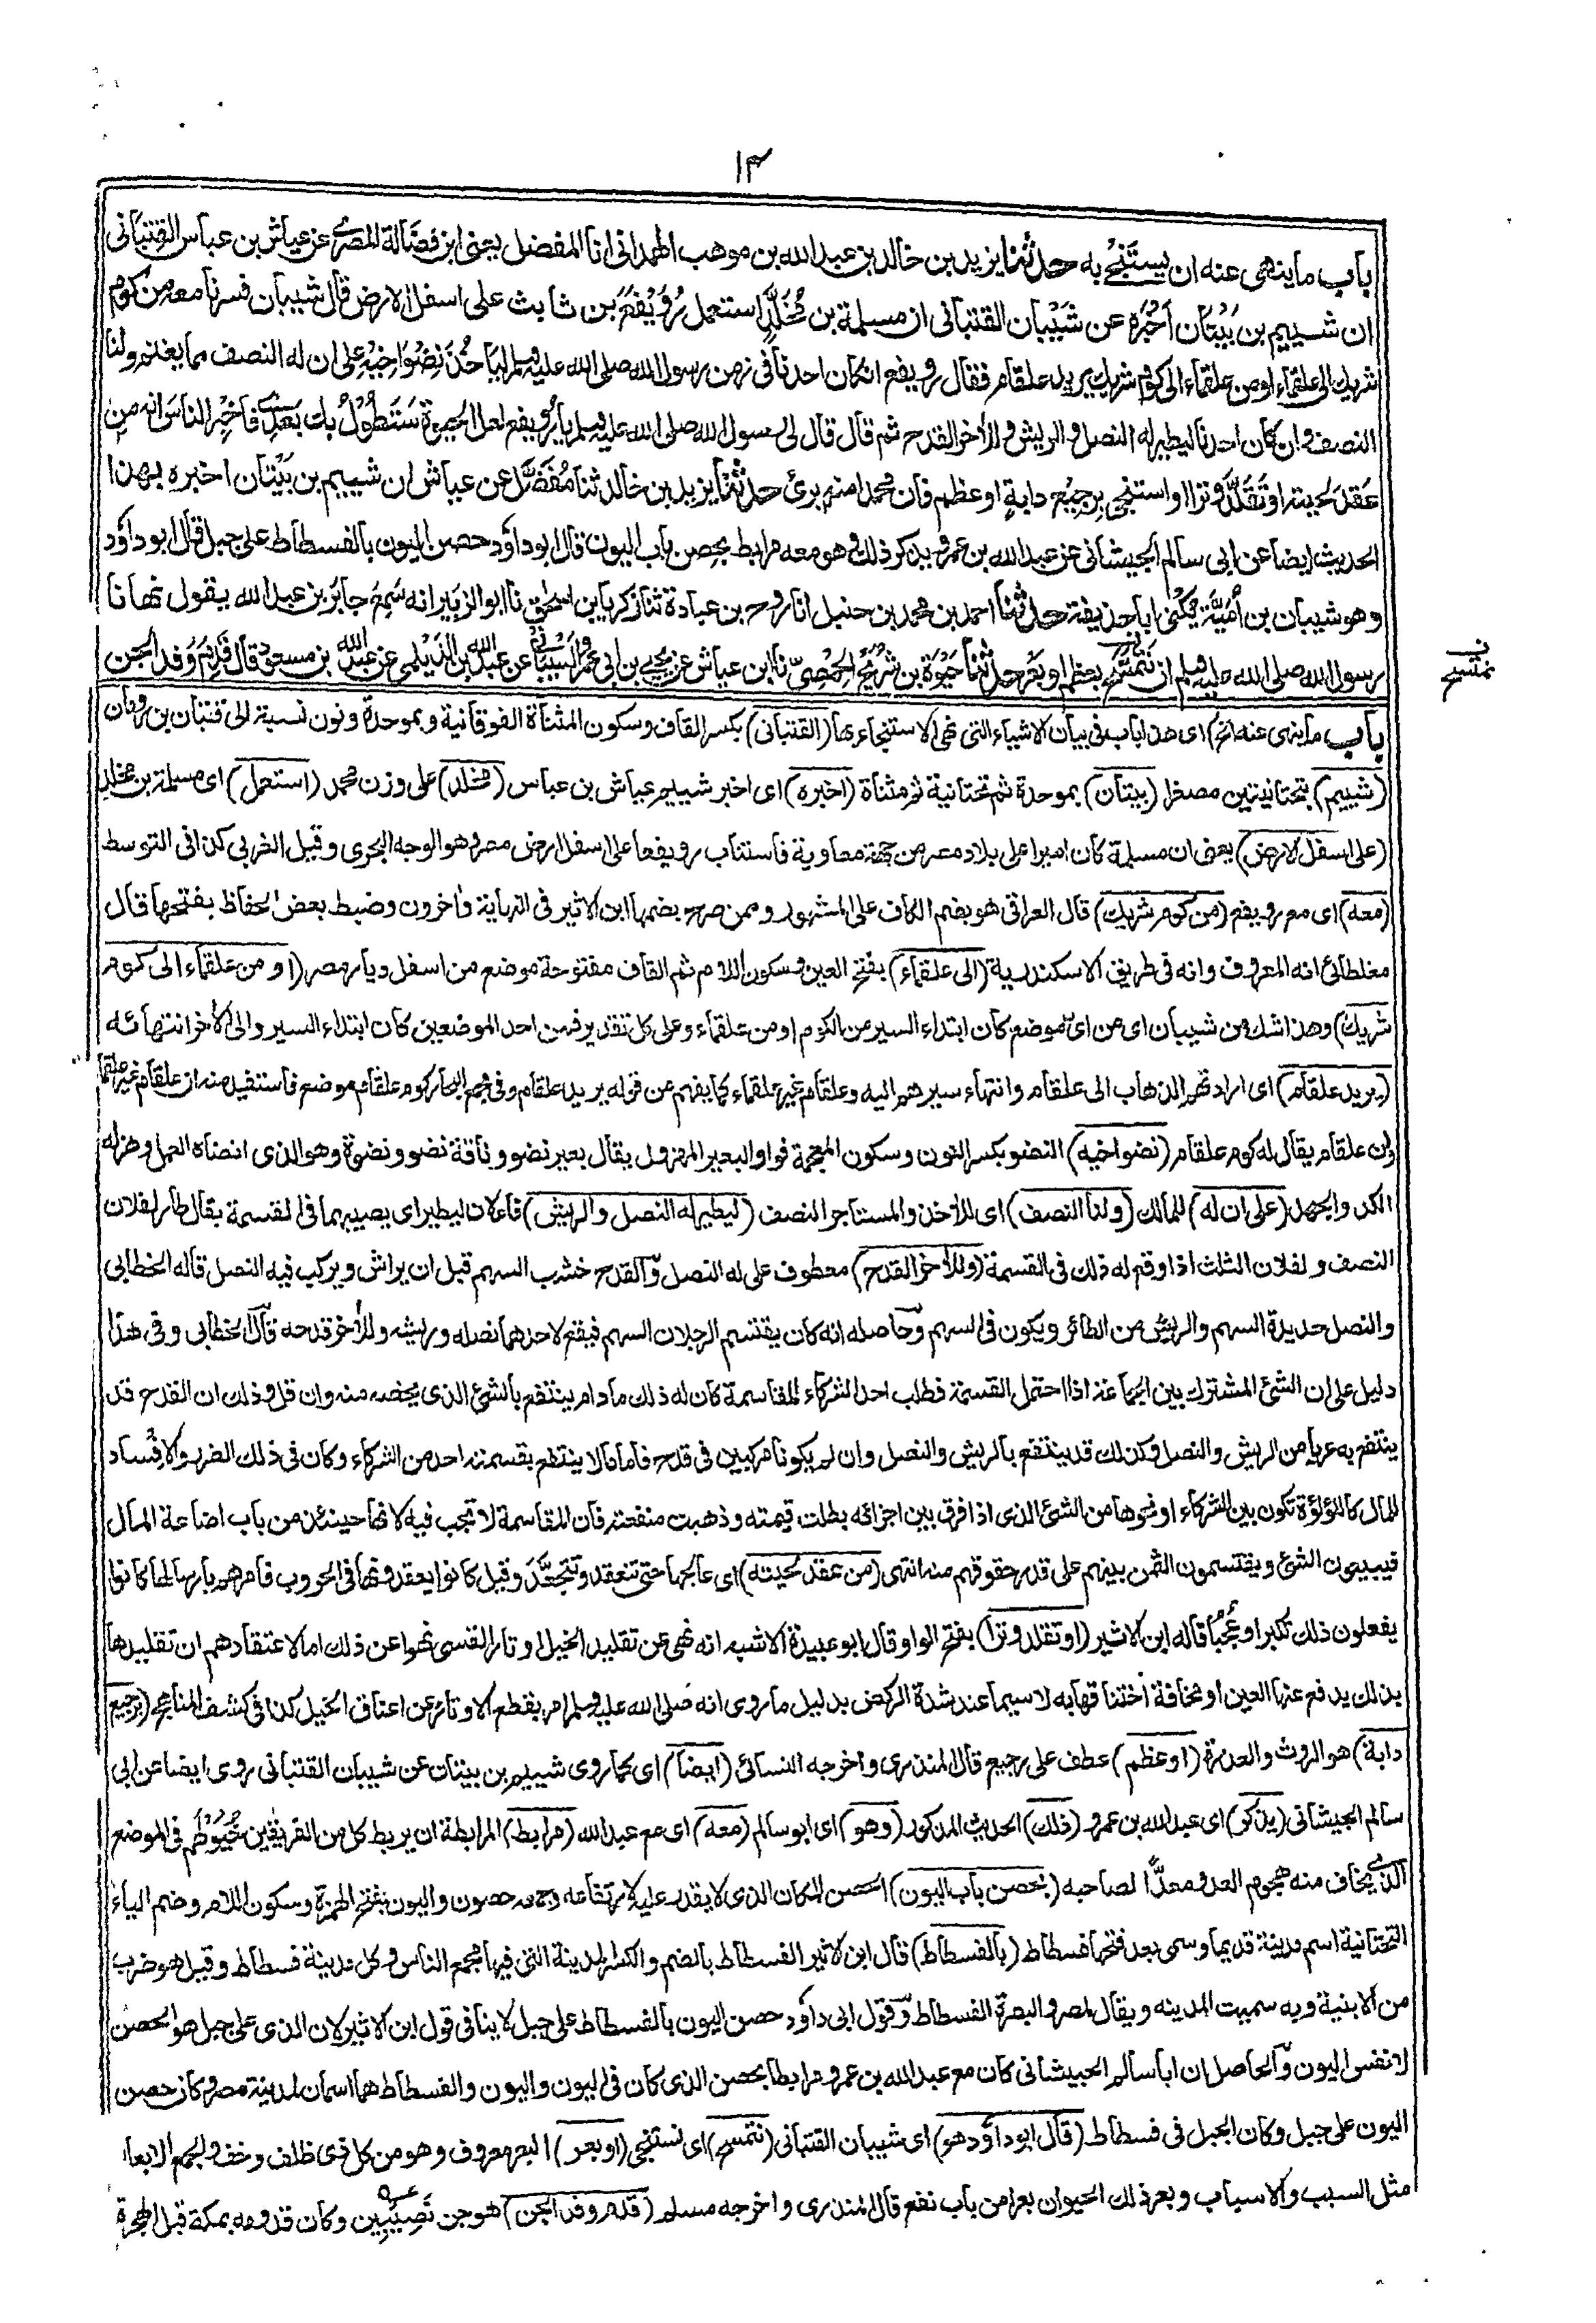 ١٣
باب ما ينهى عنه ان يستنجى به حدثنا يزيد بن خالد بن عبد الله بن موهب الهمدانى انا المفضل يعنى ابن فضالة المصرى عن عياش بن عباس القتبانى
ان شييم بن بيتان اخبره عن شيبان القتبانى ان مسلمة بن مخلد استعمل رويفع بن ثابت على اسفل الارض قال شيبان فسرنا معه من كوم
شريك الى علقماء او من علقماء الى كوم شريك يريد علقام فقال رويفع ان كان احدنا فى زمن رسول الله صلى الله عليه وسلم ليأخذ نضو اخيه على ان له النصف مما يغنم ولنا
النصف وان كان احدنا ليطير له النصل والريش وللآخر القدح ثم قال قال لى رسول الله صلى الله عليه وسلم يا رويفع لعل الحيوة ستطول بك بعدى فاخبر الناس انه من
عقد لحيته او تقلد وترا او استنجى برجيع دابة او عظم فان محمدا منه برئ حدثنا يزيد بن خالد ثنا مفضل عن عياش ان شييم بن بيتان اخبره بهذا
الحديث ايضا عن ابى سالم الجيشانى عن عبد الله بن عمرو يذكر ذلك وهو معه مرابط بحصن باب اليون قال ابو داؤد حصن اليون بالفسطاط على جبل قال ابو داؤد
وهو شيبان بن امية يكنى ابا حذيفة حدثنا احمد بن محمد بن حنبل انا روح بن عبادة ثنا زكريا بن اسحق نا ابو الزبير انه سمع جابر بن عبد الله يقول نهانا
رسول الله صلى الله عليه وسلم ان نتمسح بعظم او بعر حدثنا حيوة بن شريح الحمصى نا ابن عياش عن يحيى بن ابى عمرو السيبانى عن عبد الله بن الديلمى عن عبد الله بن مسعود قال قدم وفد الجن
باب ما ينهى عنه الخ) اى هذا باب فى بيان الاشياء التى نهى الاستنجاء بها (القتبانى) بكسر القاف وسكون المثناة الفوقانية وبموحدة ونون نسبة الى قتبان بن رومان
(شييم) بتحتانيتين مصغرا (بيتان) بموحدة ثم تحتانية ثم مثناة (اخبره) اى اخبر شييم عياش بن عباس (مخلد) على وزن محمد (استعمل) اى مسلمة بن مخلد
(على اسفل الارض) يعنى ان مسلمة كان اميرا على بلاد مصر من جهة معاوية فاستناب رويفعا على اسفل ارض مصر وهو الوجه البحرى وقيل الغربى كذا فى التوسط
(معه) اى مع رويفع (من كوم شريك) قال العراقى هو بضم الكاف على المشهور وممن صرح بضمها ابن الاثير فى النهاية واخرون وضبط بعض الحفاظ بفتحها قال
مغلطائ انه المعروف وانه فى طريق الاسكندرية (الى علقماء) بفتح العين وسكون اللام ثم القاف مفتوحة موضع من اسفل ديار مصر (او من علقماء الى كوم
شريك) وهذا شك من شيبان اى من اى موضع كان ابتداء السير من الكوم او من علقماء وعلى كل تقدير فمن احد الموضعين كان ابتداء السير والى الآخر انتهائه
(يريد علقام) اى ارادتهم الذهاب الى علقام وانتهاء سيرهم اليه وعلقام غير علقماء كما يفهم من قوله يريد علقام وفى مجمع البحار كوم علقام موضع فاستفيد منه ان علقام غير علقما
وان علقام يقال له كوم علقام (نضو اخيه) النضو بكسر النون وسكون المعجمة فواو البعير المهزول يقال بعير نضو وناقة نضو ونضوة وهو الذى انضاه العمل وهزله
الكد والجهد (على ان له) للمالك (ولنا النصف) اى للآخذ والمستأجر النصف (ليطير له النصل والريش) فاعلان ليطير اى يصيبهما فى القسمة يقال طار لفلان
النصف ولفلان الثلث اذا وقع له ذلك فى القسمة (وللآخر القدح) معطوف على له النصل والقدح خشب السهم قبل ان يراش ويركب فيه النصل قاله الخطابى
والنصل حديدة السهم والريش من الطائر ويكون فى السهم وحاصله انه كان يقتسم الرجلان السهم فيقع لاحدهما نصله وريشه وللآخر قدحه قال الخطابى وفى هذا
دليل على ان الشئ المشترك بين الجماعة اذا احتمل القسمة فطلب احد الشركاء المقاسمة كان له ذلك ما دام ينتفع بالشئ الذى يخصه منه وان قل وذلك ان القدح قد
ينتفع به عريا من الريش والنصل وكذلك قد ينتفع بالريش والنصل وان لم يكونا مركبين فى قدح فاما ما لا ينتفع بقسمته احد من الشركاء وكان فى ذلك الضرر والافساد
للمال كاللؤلؤة تكون بين الشركاء او نحوها من الشئ الذى اذا فرق بين اجزائه بطلت قيمته وذهبت منفعته فان المقاسمة لا تجب فيه لانها حينئذ من باب اضاعة المال
فيبيعون الشئ ويقتسمون الثمن بينهم على قدر حقوقهم منه انتهى (من عقد لحيته) اى عالجها حتى تنعقد وتتجعد وقيل كانوا يعقدونها فى الحروب فامرهم بارسالها كانوا
يفعلون ذلك تكبرا وعجبا قاله ابن الاثير (او تقلد وترا) بفتح الواو قال ابو عبيدة الاشبه انه نهى عن تقليد الخيل اوتار القسى نهوا عن ذلك اما لاعتقادهم ان تقليدها
بذلك يدفع عنها العين او مخافة اختناقها به لا سيما عند شدة الركض بدليل ما روى انه صلى الله عليه وسلم امر بقطع الاوتار عن اعناق الخيل كذا فى كشف المناهج (برجيع
دابة) هو الروث والعذرة (او عظم) عطف على رجيع قال المنذرى واخرجه النسائى (ايضا) اى كما روى شييم بن بيتان عن شيبان القتبانى روى ايضا عن ابى
سالم الجيشانى (يذكر) اى عبد الله بن عمرو (ذلك) الحديث المذكور (وهو) اى ابو سالم (معه) اى مع عبد الله (مرابط) المرابطة ان يربط كل من الفريقين خيولهم فى الموضع
الذى يخاف منه هجوم العدو معدا لصاحبه (بحصن باب اليون) الحصن المكان الذى لا يقدر عليه لارتفاعه وجمعه حصون واليون بفتح الهمزة وسكون اللام وضم الياء
التحتانية اسم مدينة قديما وسمى بعد فتحها فسطاط (بالفسطاط) قال ابن الاثير الفسطاط بالضم والكسر المدينة التى فيها مجمع الناس وكل مدينة فسطاط وقيل هو ضرب
من الابنية وبه سميت المدينه ويقال لمصر والبصرة الفسطاط وقول ابى داؤد حصن اليون بالفسطاط على جبل لا ينافى قول ابن الاثير لان الذى على جبل هو الحصن
لا نفس اليون والحاصل ان ابا سالم الجيشانى كان مع عبد الله بن عمرو مرابطا بحصن الذى كان فى اليون واليون والفسطاط هما اسمان لمدينة مصر وكان حصن
اليون على جبل وكان الجبل فى فسطاط (قال ابو داؤد هو) اى شيبان القتبانى (نتمسح) اى نستنجى (او بعر) البعر معروف وهو من كل ذى ظلف وخف والجمع الابعار
مثل السبب والاسباب وبعر ذلك الحيوان بعرا من باب نفع قال المنذرى واخرجه مسلم (قدم وفد الجن) هو جن نصيبين وكان قدومه بمكة قبل الهجرة